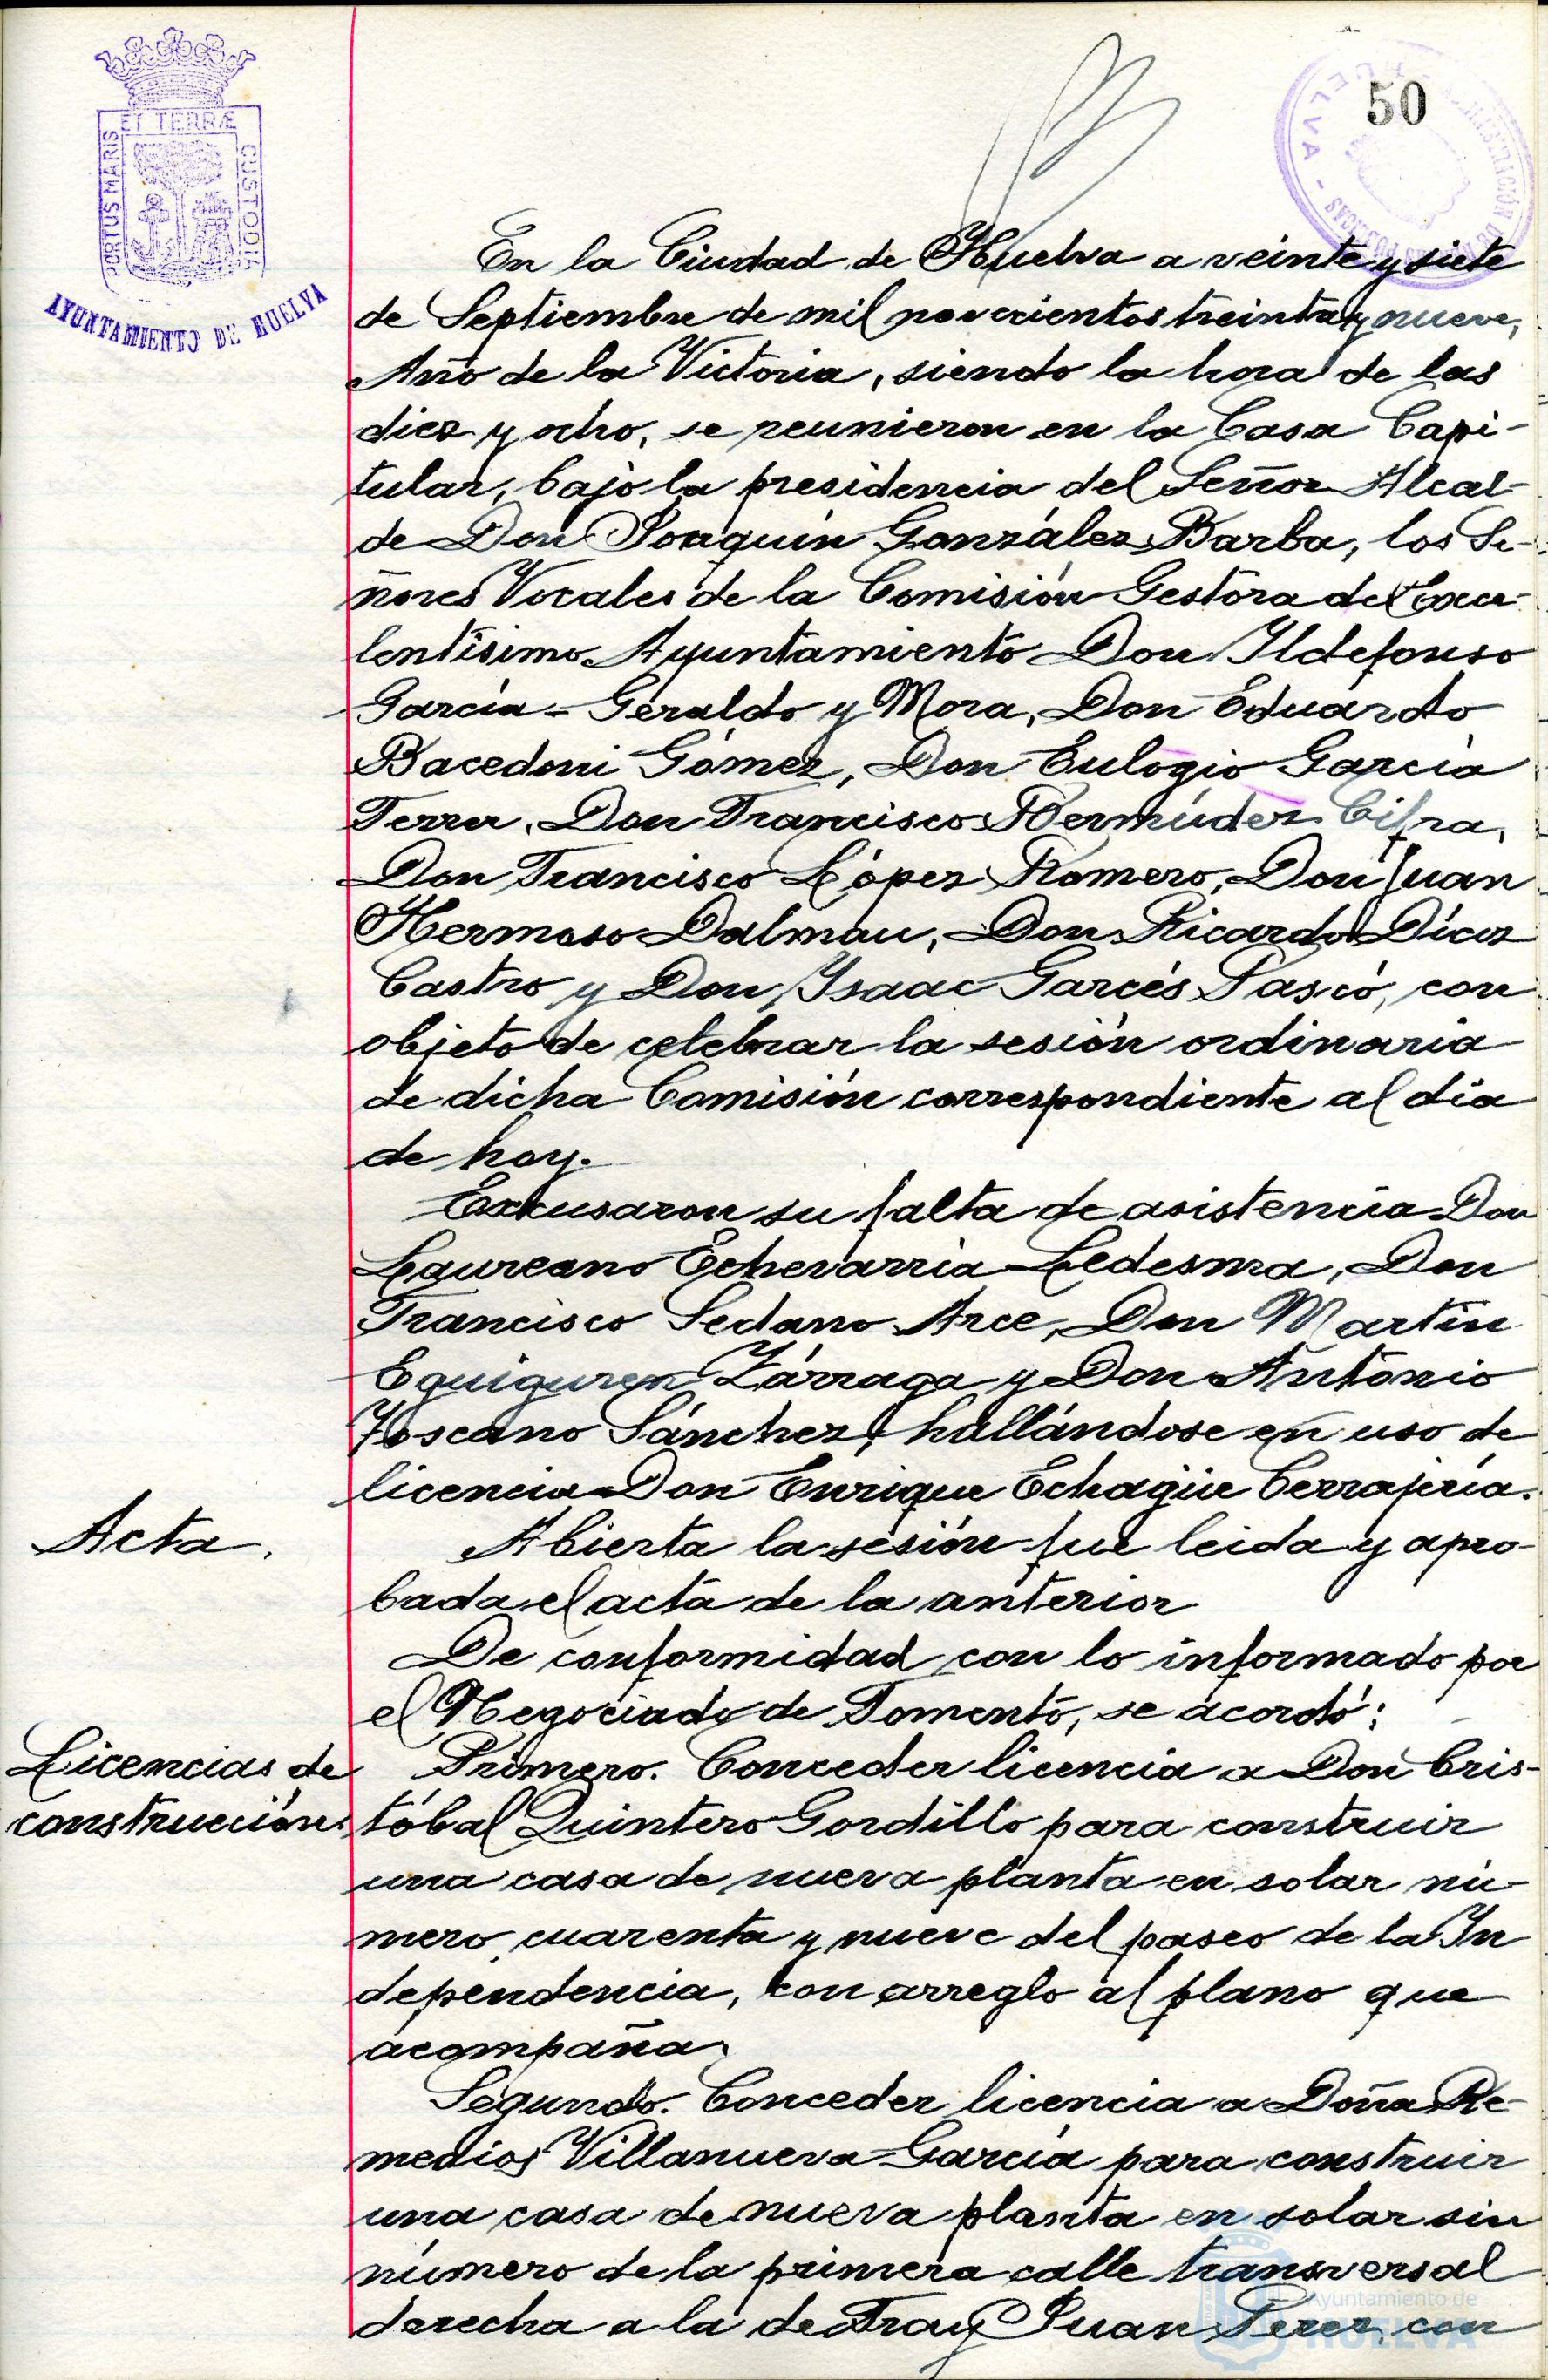 50
PORTUS MARIS ET TERRÆ CUSTODIA
AYUNTAMIENTO DE HUELVA
En la Ciudad de Huelva a veinte y siete
de Septiembre de mil novecientos treinta y nueve,
Año de la Victoria, siendo la hora de las
diez y ocho, se reunieron en la Casa Capi-
tular, bajo la presidencia del Señor Alcal-
de Don Joaquín González Barba, los Se-
ñores Vocales de la Comisión Gestora del Exce-
lentísimo Ayuntamiento Don Ildefonso
García-Geraldo y Mora, Don Eduardo
Bacedoni Gómez, Don Eulogio García
Ferrer, Don Francisco Bermúdez Cifra,
Don Francisco López Romero, Don Juan
Hermoso Dalmau, Don Ricardo Díez
Castro y Don Isaac Garcés Pascó, con
objeto de celebrar la sesión ordinaria
de dicha Comisión correspondiente al día
de hoy.
Excusaron su falta de asistencia Don
Laureano Echevarría Ledesma, Don
Francisco Sedano Arce, Don Martín
Eguiguren Zárraga y Don Antonio
Toscano Sánchez, hallándose en uso de
licencia Don Enrique Echagüe Cerrajería.
Acta. Abierta la sesión fue leida y apro-
bada el acta de la anterior
De conformidad con lo informado por
el Negociado de Fomento, se acordó:
Licencias de Primero. Conceder licencia a Don Cris-
construcción. tóbal Quintero Gordillo para construir
una casa de nueva planta en solar nú-
mero cuarenta y nueve del paseo de la In
dependencia, con arreglo al plano que
acompaña.
Segundo. Conceder licencia a Doña Re-
medios Villanueva García para construir
una casa de nueva planta en solar sin
número de la primera calle transversal
derecha a la de Fray Juan Perez, con
Ayuntamiento de
HUELVA